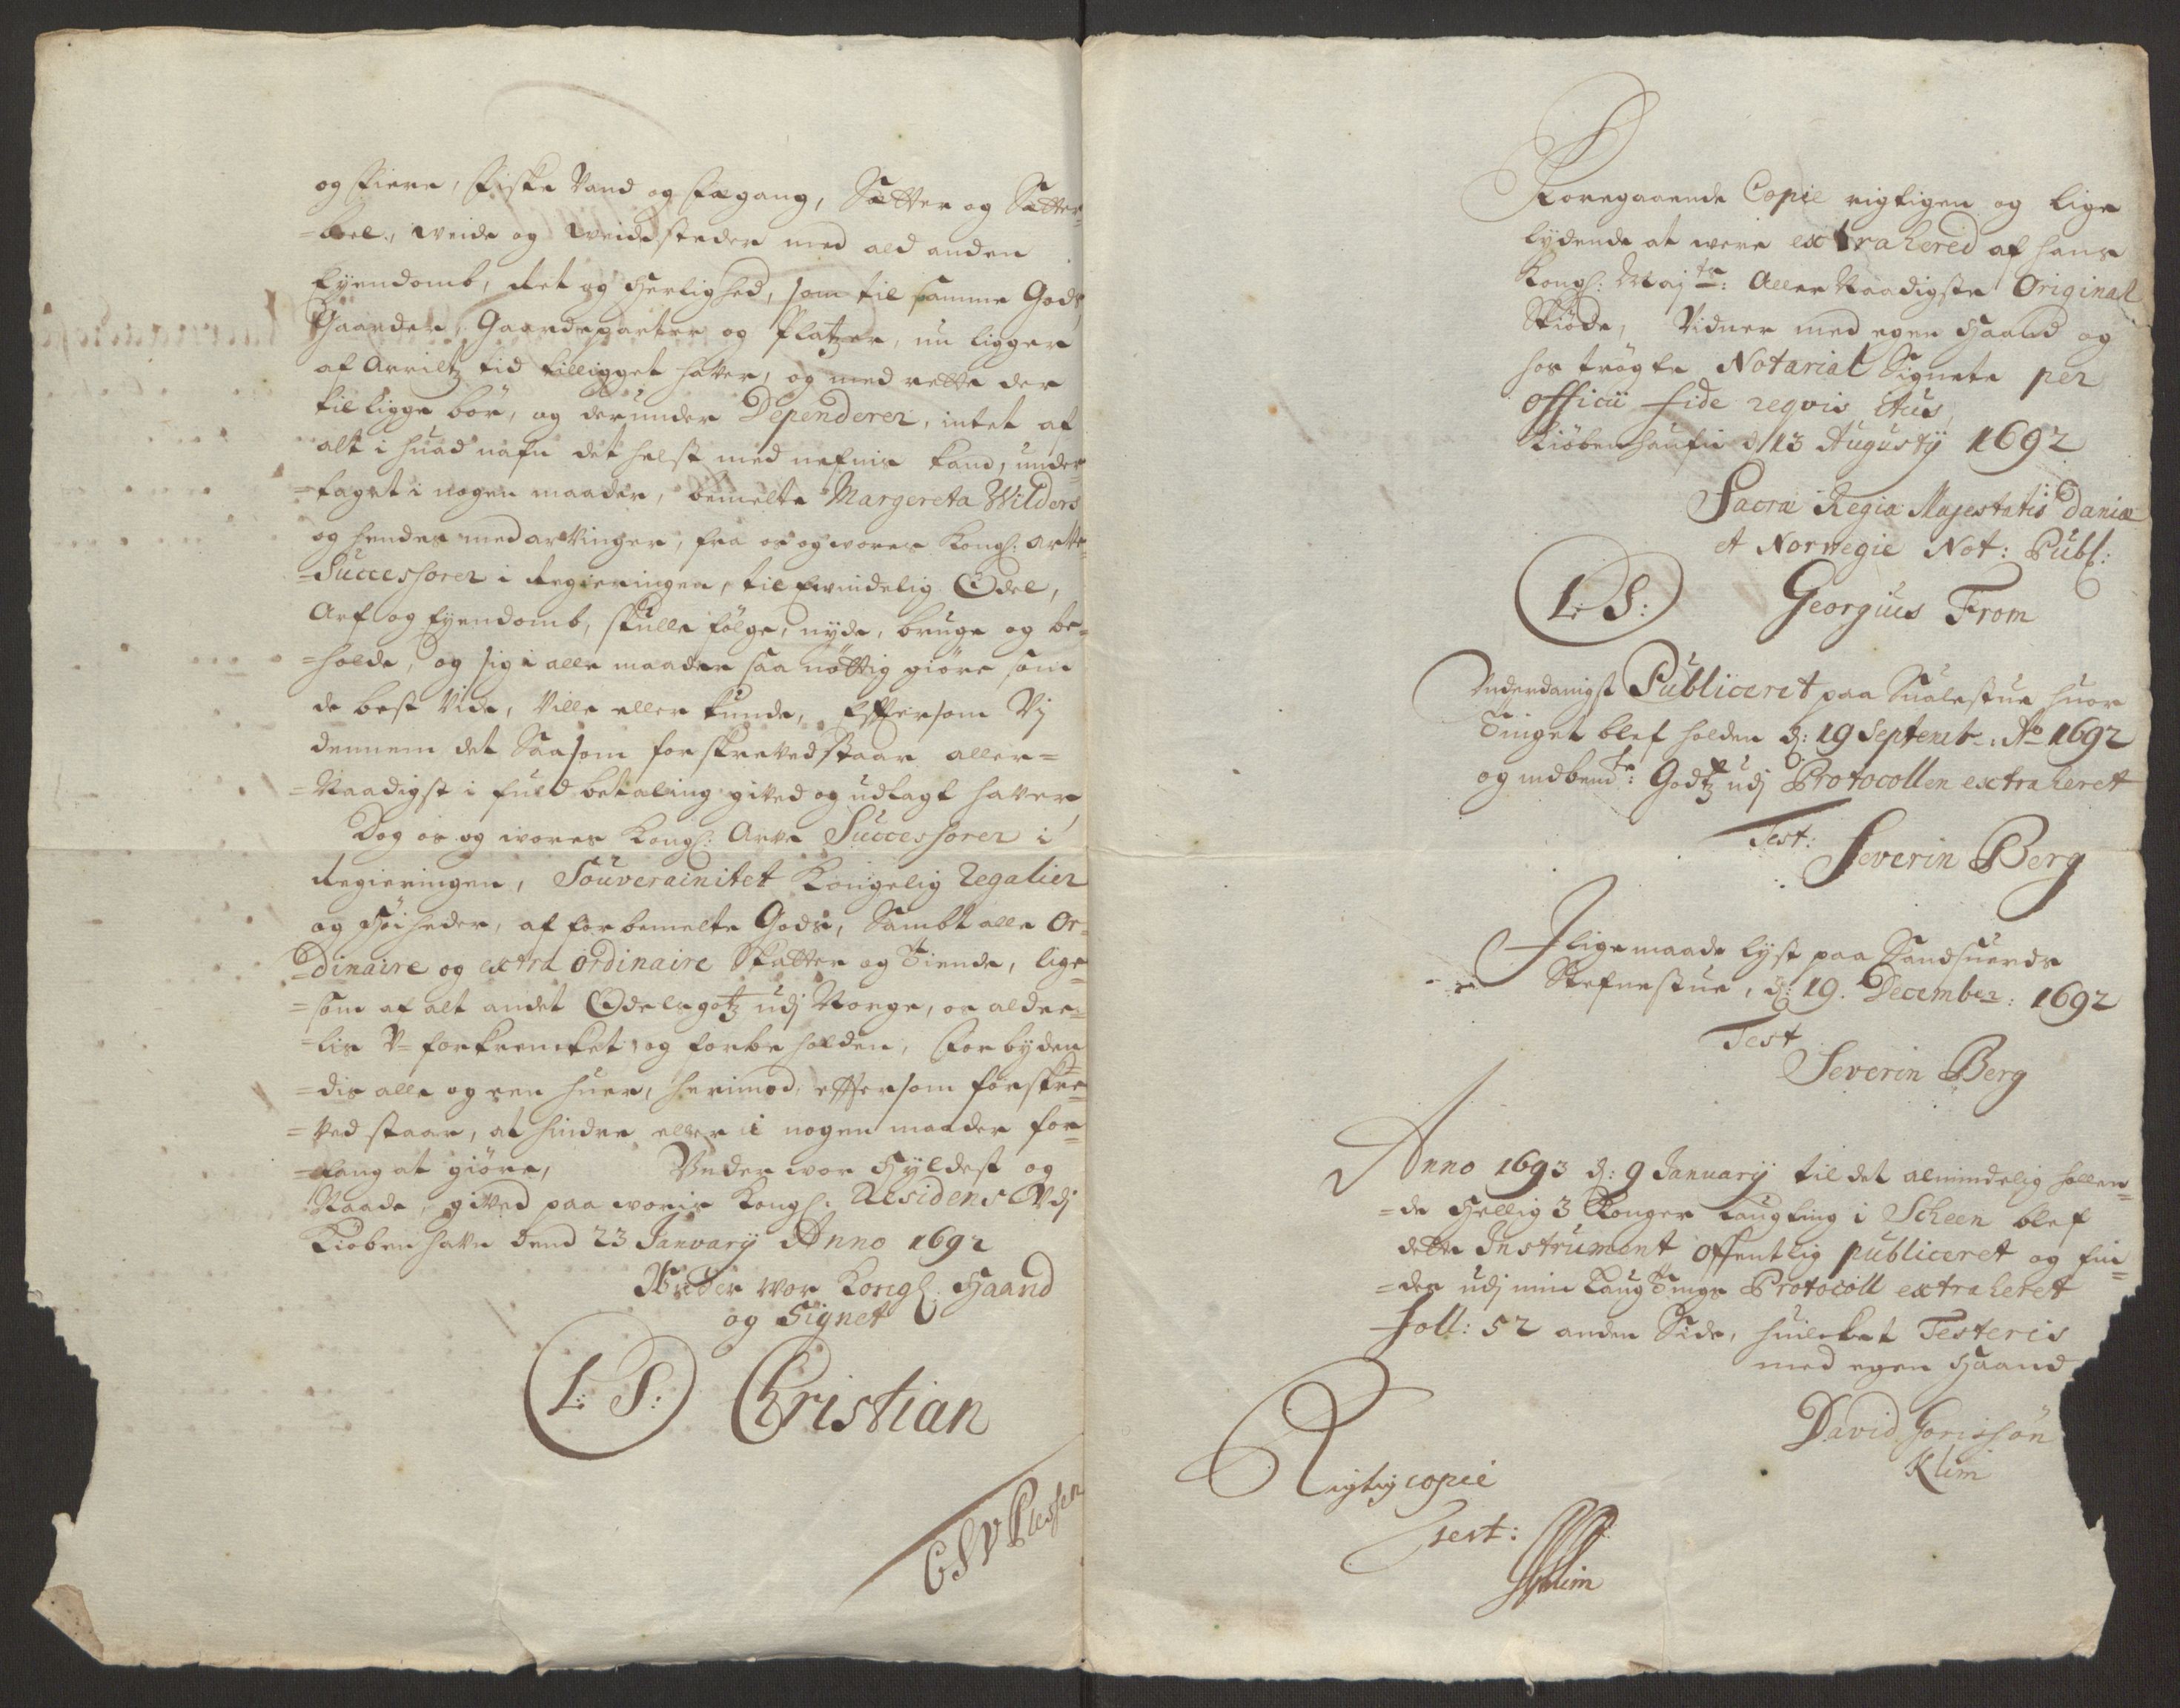 og fiære, fiske Vand og fægang, Sætter og Sætter-
=boel, weide og weidesteder med ald anden
Eyendomb, Ret og Herlighed, som til samme Gods,
Gaarder, Gaardeparter og Platzer, nu ligger
af Arriltz tid tilligget haver, og med rette der
til ligge bör, og derunder Dependerer, intet af
alt i huad nafn det helst med nefnis kand, under
=taget i nogen maader, bemelte Margereta Wilders
og hendes medarvinger, fra os og wores Kongl: arve
=Successorer i Regieringen, til Ewindelig Odel,
Arf og Eyendomb, skulle følge, nyde, bruge og be=
=holde, og sig i alle maader saa nøttig giöre som
de best Vide, Ville eller kunde, Effersom Vj
dennem det Saasom forskreved staar aller=
=Naadigst i fuld betaling gived og udlagt haver,
Dog os og wores Kongl: Arve Successorer i
Regieringen, Souverainitet Kongelig Regalier
og Høiheder, af forbemelte Gods, Sambt alle Or=
=dinaire og extra ordinaire Skatter og Tiende, lige
=som af alt andet Odelsgotz udj Norge, os aldee=
=lis V=forkrencket og forbeholden, Forbyden
=dis alle og een huer, herimod, effersom forskre=
=ved staar, at hindre eller i nogen maader for=
=fang at giöre, Vnder vor Hyldest og
Naade, gived paa voris Kongl: Residens Vdj
Kiöbenhavn dend 23 Januarij Anno 1692
Under wor Kongl: Haand
og Signet
L: S: Christian
C S V Plessen
Foregaaende Copie rigtigen og lige
lydende at were extrahered af hans
Kongl: Maj:ts: Aller Naadigste Original
Skiöde, Vidner med egen Haand og
hos trögte Notarial Signete per
officii fide reqvisitus,
Kiöbenhaufn d 13 Augustij 1692
Sacræ Regiæ Majestatis Daniæ
et Norwegiæ Not: Publ:
L: S: Georgius From
Vnderdanigst Publiceret paa Sualestue huor
Tinget blef holden d: 19 Septemb: Ao 1692
og indbemte: Godtz udj Protocollen extraheret
Test: Severin Berg
Jligemaade lyst paa Sandsuerds
Stefnestue, d: 19. December: 1692
Test
Severin Berg
Anno 1693 d: 9 Januarij til det almindelig hollen=
=de Hellig 3 Konger Laugting i Scheen blef
dette Instrument offentlig publiceret og fin=
=des udj min Laugtings Protocoll extraheret
foll: 52 anden Side, huilcket Testeris
med egen Haand
David Jorissön
Klim
Rigtig copie
Test:
Klim